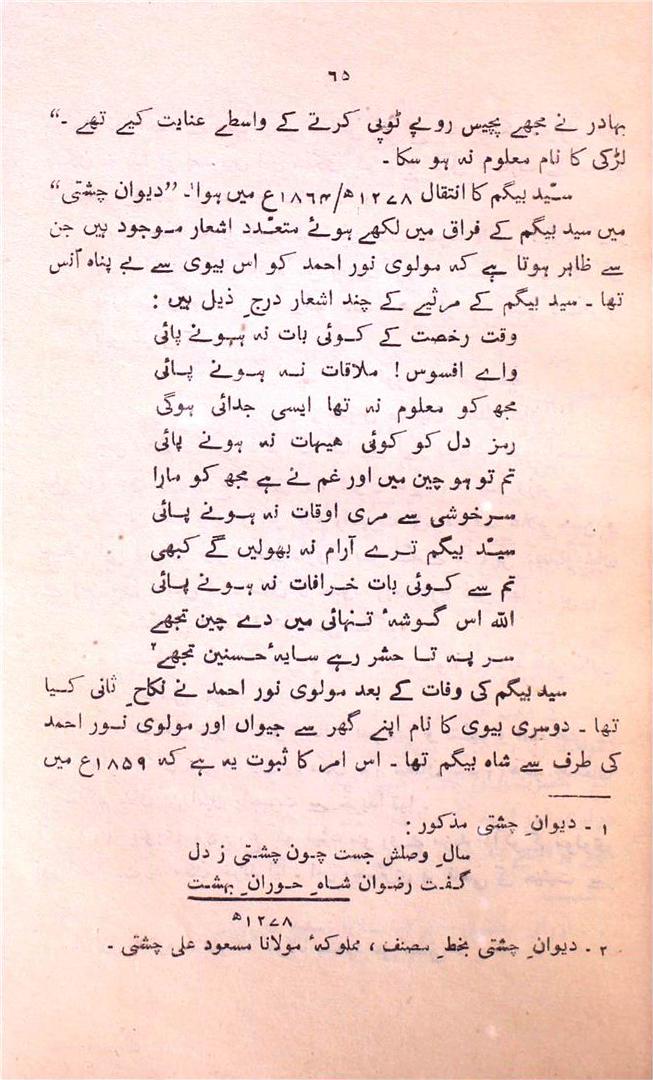 ٦٥
بہادر نے مجھے پچیس روپے ٹوپی کرتے کے واسطے عنایت کیے تھے ۔“
لڑکی کا نام معلوم نہ ہو سکا ۔
سیّد بیگم کا انتقال ١٢٧٨ھ/١٨٦٣ع میں ہوا١۔ ”دیوان چشتی“
میں سید بیگم کے فراق میں لکھے ہوئے متعدّد اشعار موجود ہیں جن
سے ظاہر ہوتا ہے کہ مولوی نور احمد کو اس بیوی سے بے پناہ اُنس
تھا ۔ سید بیگم کے مرثیے کے چند اشعار درجِ ذیل ہیں :
وقت رخصت کے کوئی بات نہ ہونے پائی
واے افسوس ! ملاقات نہ ہونے پائی
مجھ کو معلوم نہ تھا ایسی جدائی ہوگی
رمز دل کو کوئی ھیہات نہ ہونے پائی
تم تو ہو چین میں اور غم نے ہے مجھ کو مارا
سرخوشی سے مری اوقات نہ ہونے پائی
سیّد بیگم ترے آرام نہ بھولیں گے کبھی
تم سے کوئی بات خرافات نہ ہونے پائی
اللہ اس گوشۂ تنہائی میں دے چین تجھے
سر پہ تا حشر رہے سایۂ حسنین تجھے٢
سید بیگم کی وفات کے بعد مولوی نور احمد نے نکاحِ ثانی کیا
تھا ۔ دوسری بیوی کا نام اپنے گھر سے جیواں اور مولوی نور احمد
کی طرف سے شاہ بیگم تھا ۔ اس امر کا ثبوت یہ ہے کہ ١٨٥٩ع میں
١ ۔ دیوانِ چشتی مذکور :
سالِ وصلش جست چون چشتی ز دل
گفت رضوان شاہِ حورانِ بہشت
١٢٧٨ھ
٢ ۔ دیوانِ چشتی بخطِ مصنف ، مملوکۂ مولانا مسعود علی چشتی ۔